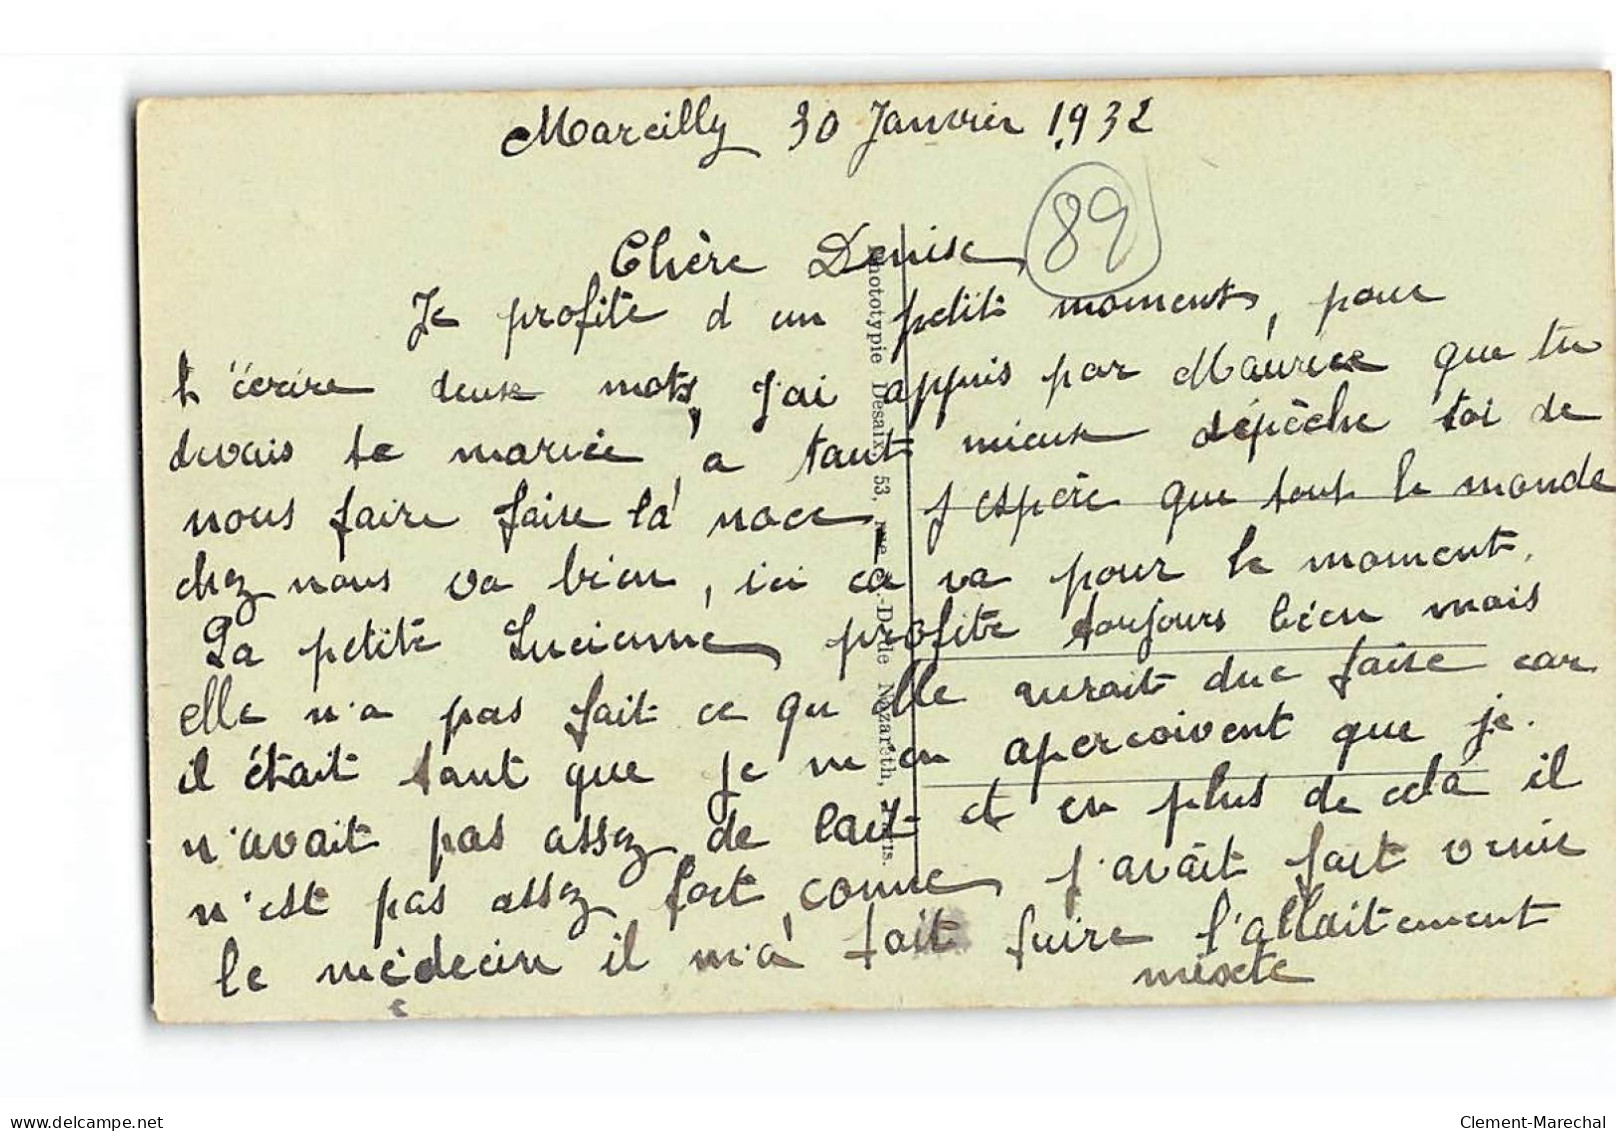 Marcilly 30 Janvier 1932
89
Chère Denise
Je profite d un petit moments, pour
t'écrire deux mots, J'ai appris par Maurice que tu
devais te mariée, a tant mieux dépèche toi de
nous faire faire la noce, j'espère que tout le monde
chez nous va bien, ici ça va pour le moment.
La petite Lucienne profite toujours bien mais
elle n'a pas fait ce qu elle aurait due faire car
il était tant que je m en apercoivent que je
n'avait pas assez de lait et en plus de cela il
n'est pas assez fort, comme j'avait fait venir
le médecin il m'a fait faire l'allaitement
mixte
Phototypie Desaix, 53, rue N.-D. de Nazareth, Paris.
delcampe.net
Clement-Marechal